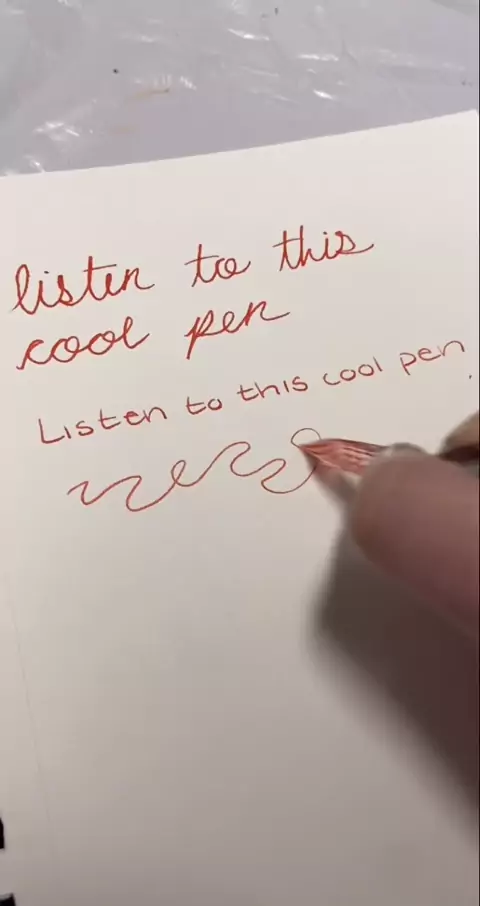 listen to this
cool pen
Listen to this cool pen